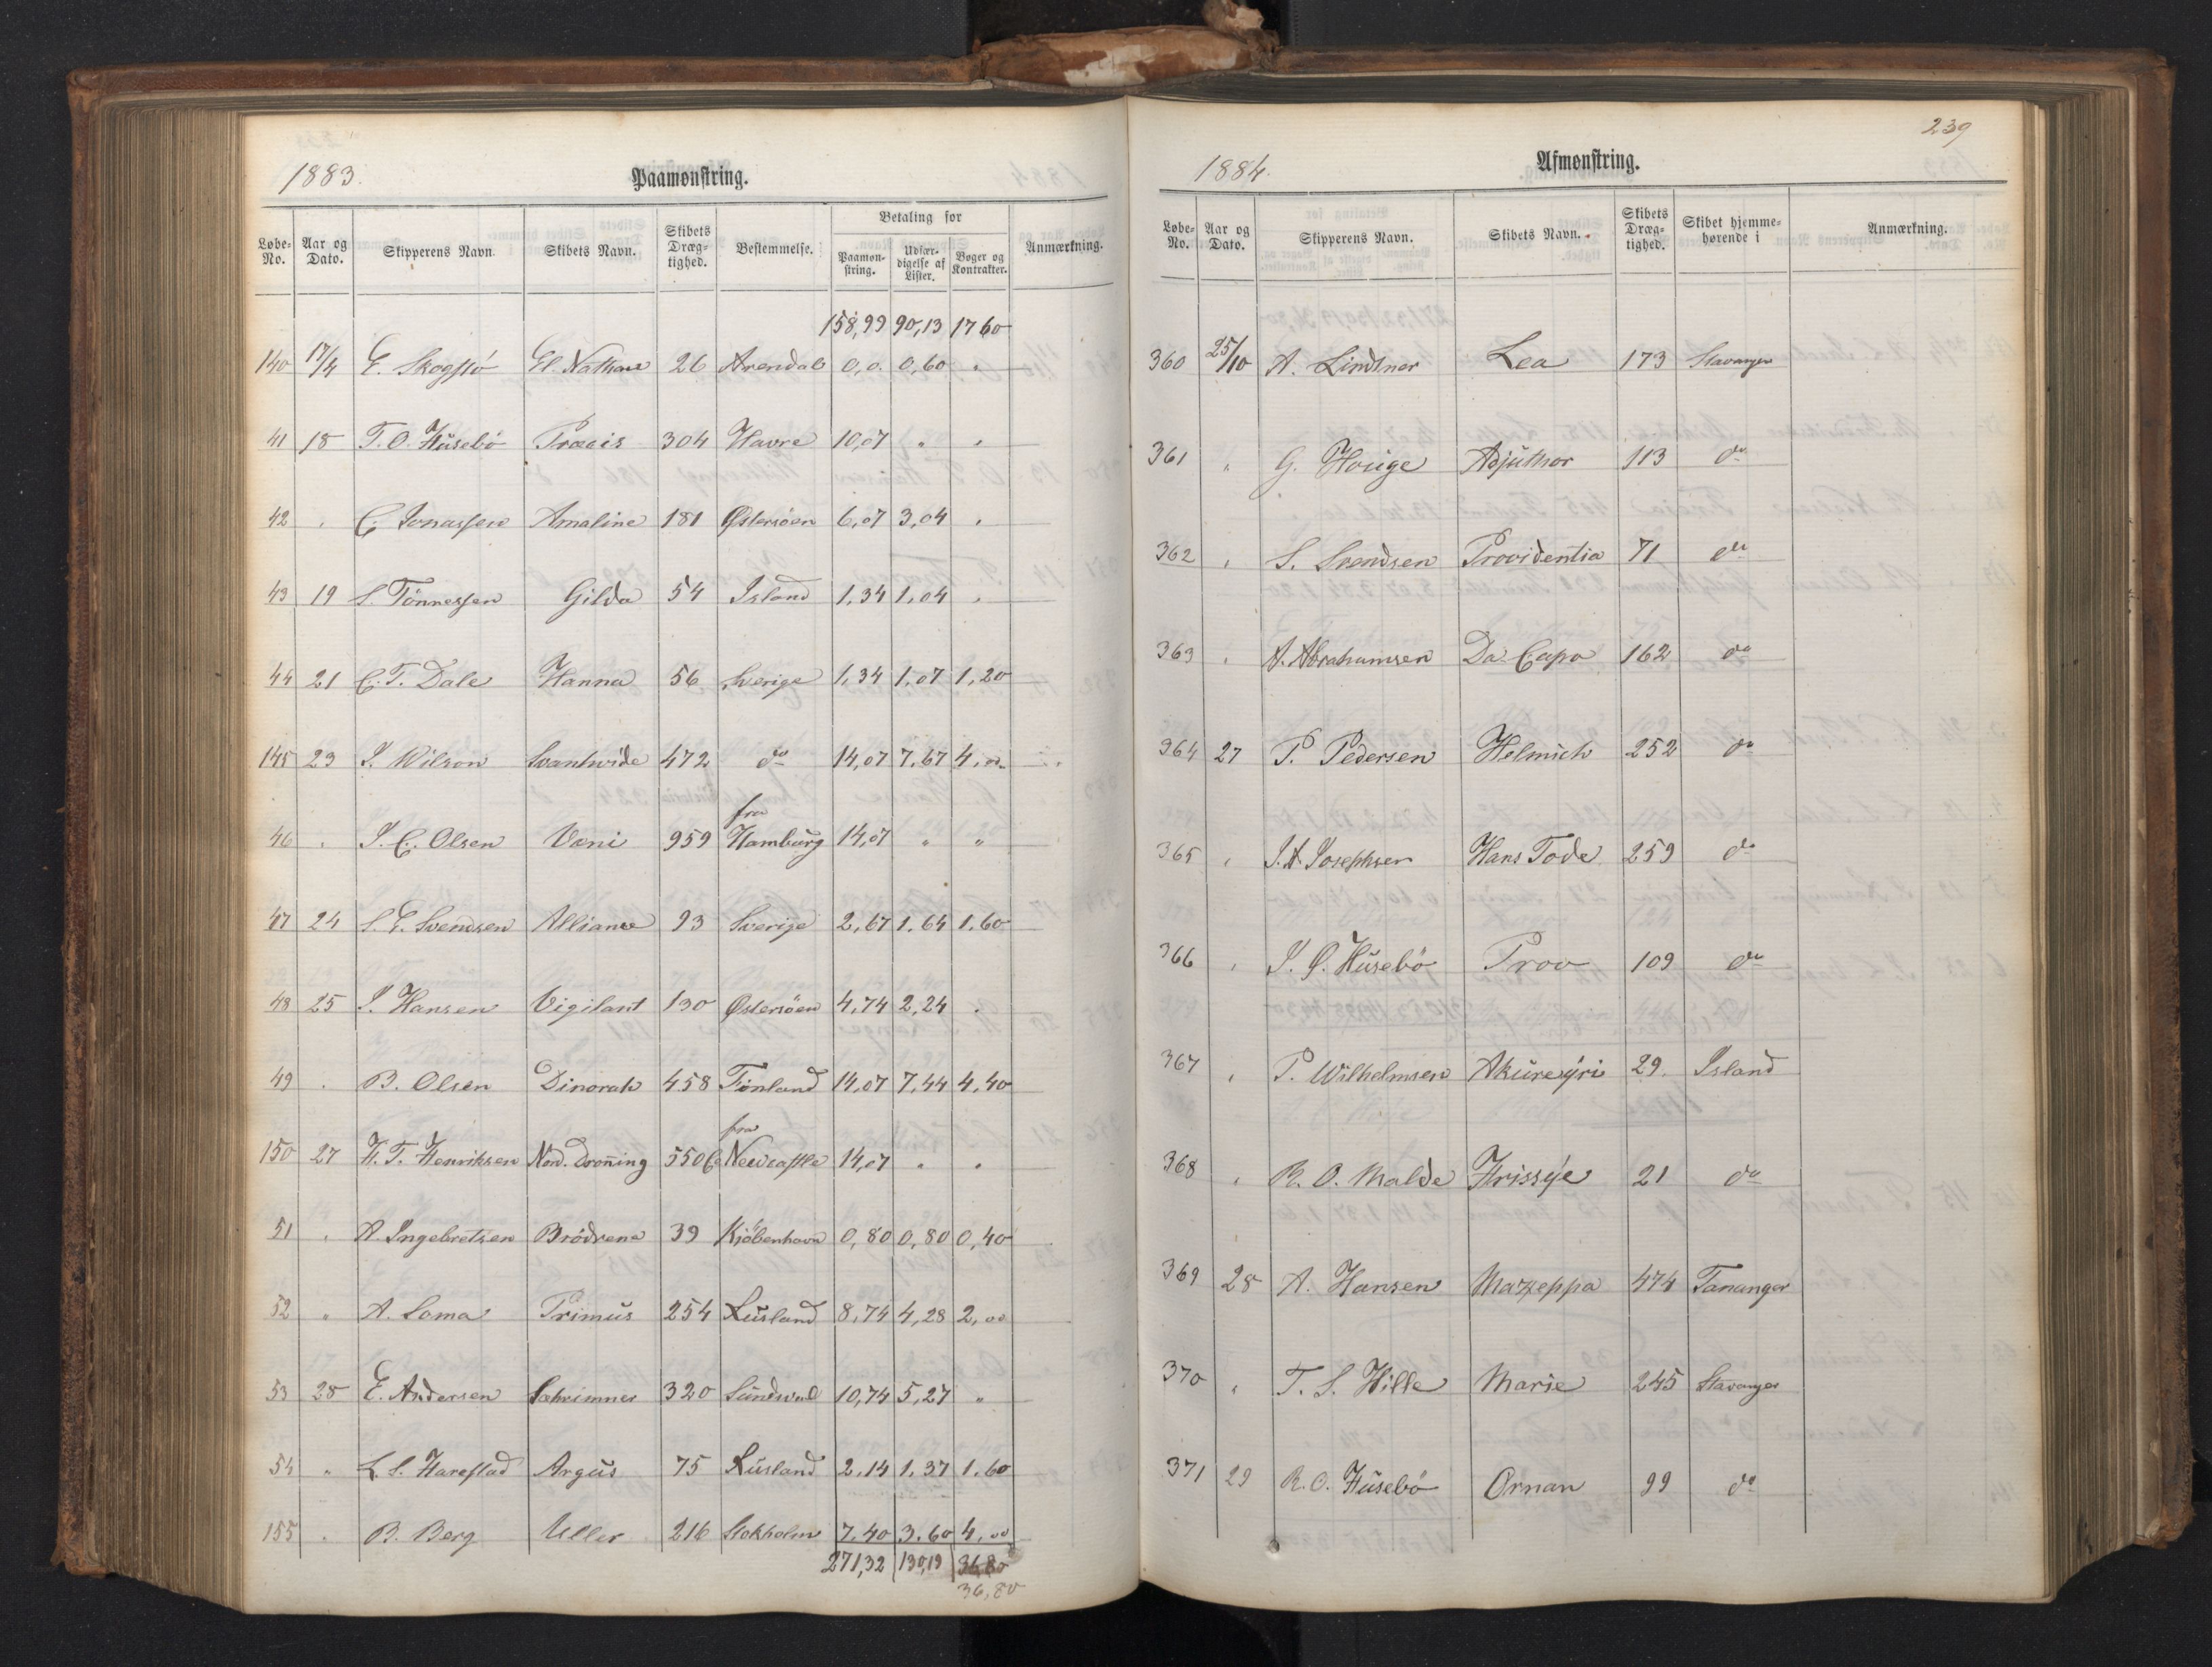 1883.
Paamønstring.
Løbe-No. Aar og Dato. Skipperens Navn Skibets Navn. Skibets Dræg-tighed. Bestemmelse. Betaling for Paamøn-string. Udfær-digelse af Lister. Bøger og Kontrakter. Anmærkning.
158,99 90,13 17 60
140 17/4 E. Skogsö El. Nathane 26 Arendal 0,0. 0,60 "
41 18 T. O. Husebö Præcis 304 Havre 10,07 " "
42 " C. Jonassen Amaline 181 Østersöen 6,07 3,04 "
43 19 S. Tönnessen Gilda 54 Island 1,34 1,04 "
44 21 C. T. Dale Hanna 56 Sverige 1,34 1,07 1,20
145 23 J. Wilson Svanhvide 472 do 14,07 7,67 4,00
fra
46 " J. C. Olsen Vani 959 Hamburg 14,07 " "
47 24 S. E. Svendsen Alliance 93 Sverige 2,67 1.64 1.60
48 25 J. Hansen Vigilant 130 Østersöen 4,74 2,24 "
49 " B. Olsen Dinorah 458 Finland 14,07 7,44 4,40
fra
150 27 H. T. Henriksen Nord. Droning 550 Newcastle 14,07 " "
51 " A. Ingebretsen Brödrene 39 Kjöbenhavn 0,80 0,80 0,40
52 " A. Soma Primus 254 Rusland 8,74 4,28 2,00
53 28 E. Andersen Sæhrimner 320 Sundsval 10,74 5,27 "
54 " L. S. Harestad Argus 75 Rusland 2,14 1,37 1,60
155 " B. Berg Uller 216 Stokholm 7,40 3,60 4,00
271,32 130,19 36,80
36,80
239
1884.
Afmønstring.
Løbe-No. Aar og Dato. Skipperens Navn. Skibets Navn. Skibets Dræg-tighed. Skibet hjemme-hørende i Anmærkning.
360 25/10 A. Lindtner Lea 173 Stavanger
361 " G. Horige Adjuthor 113 do
362 " S. Svendsen Providentia 71 do
363 " A. Abrahamsen Da Capo 162 do
364 27 P. Pedersen Helmich 252 do
365 " J. A. Josephsen Hans Tode 259 do
366 " J. Ø. Husebö Prov 109 do
367 " P. Wilhelmsen Akureyri 29. Island
368 " R. O. Malde Hrissye 21 do
369 28 A. Hansen Mazeppa 474 Tananger
370 " T. S. Hille Marie 245 Stavanger
371 29 R. O. Husebö Ornan 99 do